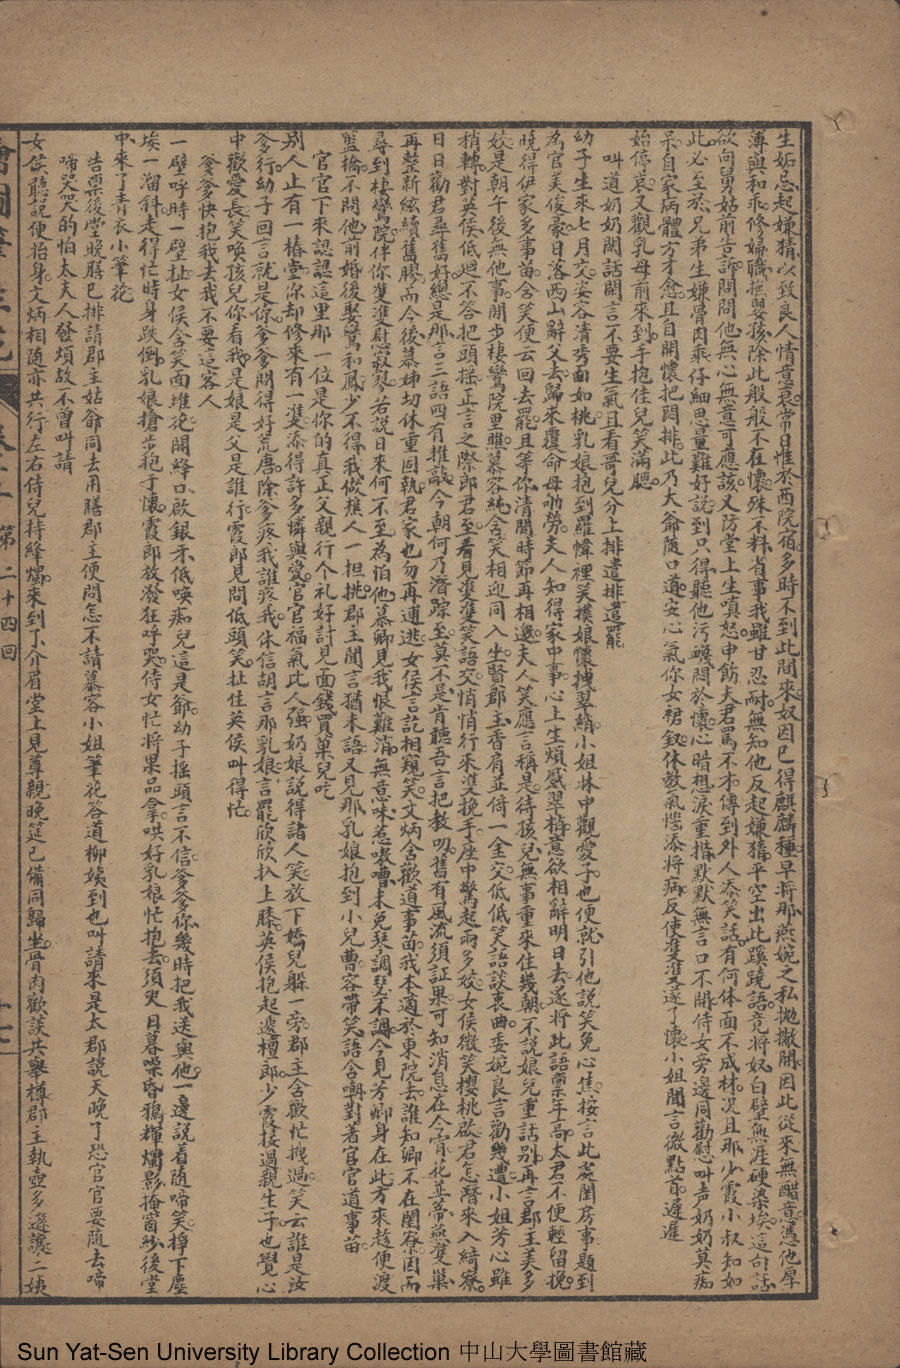 生妬忌起嫌猜以致良人情意衰常日惟於西院宿多時不到此間來奴因已得麒麟種早將那燕婉之私拋撇開因此從來無醋意憑他厚
薄與和乖修婦職撫嬰孩除此般般不在懷殊不料省事我雖甘忍耐無知他反起嫌猜平空出此蹊蹺語竟將奴白璧無涯硬染埃這句話
欲向舅姑前告訴閙問他無心無意可應該又防堂上生嗔怒申飭夫君罵不才傳到外人添笑話有何体面不成林况且那少霞小叔知如
此必至於兄弟生嫌骨肉乖仔細思量難好說到只得聽他污衊悶於懷心暗想淚重揩默默無言口不開侍女旁邊同勸慰叫声奶奶莫痴
呆自家病體方才愈且自開懷把悶排此乃大爺隨口道安心氣你女裙釵休教氣惱添將病反使雙雙遂了懷小姐聞言微點首遲遲
始停哀又觀乳母前來到手抱佳兒笑滿腮
叫道奶奶閑話閑言不要生氣且看哥兒分上排遣排遣罷
幼子生來七月交姿容清秀面如桃乳娘抱到羅幃裡笑撲娘懷摶翠綃小姐牀中觀愛子也便就引他說笑免心焦按言此處閨房事題到
為官美俊豪日落西山辭父去歸來覆命母劬勞夫人知得家中事心上生煩蹙翠梢意欲相辭明日去遂將此語禀年高太君不便輕留挽
曉得伊家多事苗含笑便云回去罷且等你清閒時節再相邀夫人笑應言稱是待孩兒無事重來住幾朝不說娘兒重話別再言郡王美多
姣是朝午後無他事閒步棲鸞院里瞧慕容純含笑相迎同入坐瞖郡主香肩並倚一金交低低笑語談衷曲委婉良言勸幾遭小姐芳心雖
稍轉對英侯低迴不答把頭搖正言之際郎君至看見雙雙笑語交悄悄行來雙挽手座中驚起兩多姣女侯微笑櫻桃啟君怎暦來入綺寮
日日勸君尋舊好總是那言三語四有推敲今朝何乃潛踪至莫不是肯聽吾言把教叨舊有風流須証果可知消息在今宵花並蒂燕雙巢
再整新絃續舊膠而今後慕姊切休重回執君家也勿再逋逃女侯言訖相窺笑文炳含歡道事苗我本適於東院去誰知卿不在閨寮因而
尋到棲鸞院伴你雙雙慰寂寥若說日來何不至為怕他慕卿見我恨難消無意味惹嗷嘈未免琴調瑟不調今見芳卿身在此方來趁便渡
藍橋不問他前婚後娶鸞和鳳少不得我做樵人一担挑郡主聞言猶未語又見那乳娘抱到小兒曹容帶笑語含嘲對著官官道事苗
官官下來認認這里那一位是你的真正父親行个礼好討見面錢買菓兒吃
别人止有一椿萱你却修來有一雙添得許多憐與愛官官福氣比人强奶娘說得諸人笑放下嬌兒躲一旁郡主含歡忙拽過笑云誰是汝
爹行幼子回言就是你爹爹問得好荒唐除爹疼我誰疼我休信胡言那乳娘言罷欣欣扒上膝英侯抱起婆檀郎少霞接過親生子也覺心
中歡愛長笑喚孩兒你看我是娘是父是誰行霞郎見問低頭笑扯住英侯叫得忙
爹爹快抱我去我不要這客人
一壁呼時一壁扯女侯含笑面堆花開絳口啟銀牙低喚痴兒這是爺幼子搖頭言不信爹爹你幾時把我送與他一邊說着隨啼笑掙下塵
埃一溜斜走得忙時身跌倒乳娘搶步抱于懷霞郎放潑狂呼哭侍女忙將果品拿哄好乳娘忙抱去須臾日暮噪昏鴉輝爥影掩窗紗後堂
中來了青衣小筆花
告禀後堂晚膳已排請郡主姑爺同去用膳郡主便問怎不請慕容小姐筆花答道柳姨到也叫請來是太郡說天晚了恐官官要隨去啼
啼哭哭的怕太夫人發煩故不曾叫請
女侯聽說便抬身文炳相随亦共行左右侍兒持絳爥來到了介眉堂上見尊親晚筵已備同歸坐骨肉歡談共舉樽郡主執壺多遜讓二姨
繪圖筆生花
第二十四回
十七
Sun Yat-Sen University Library Collection 中山大學圖書館藏